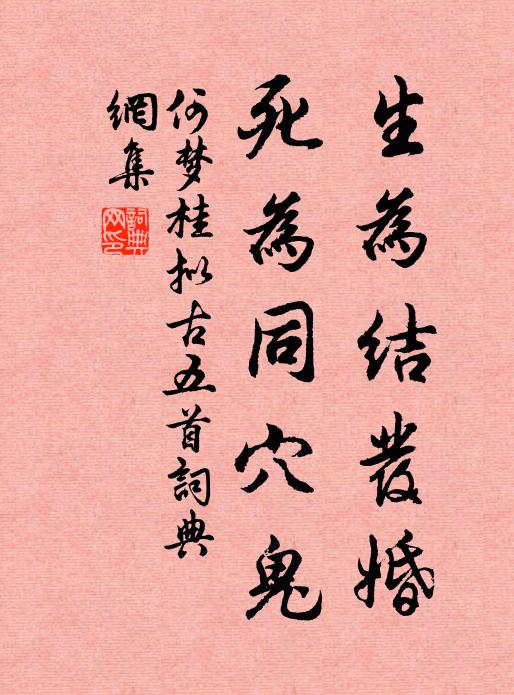 生為結發婚
死為同穴鬼
何梦桂拟古五首詞典
網集
詞典
网印